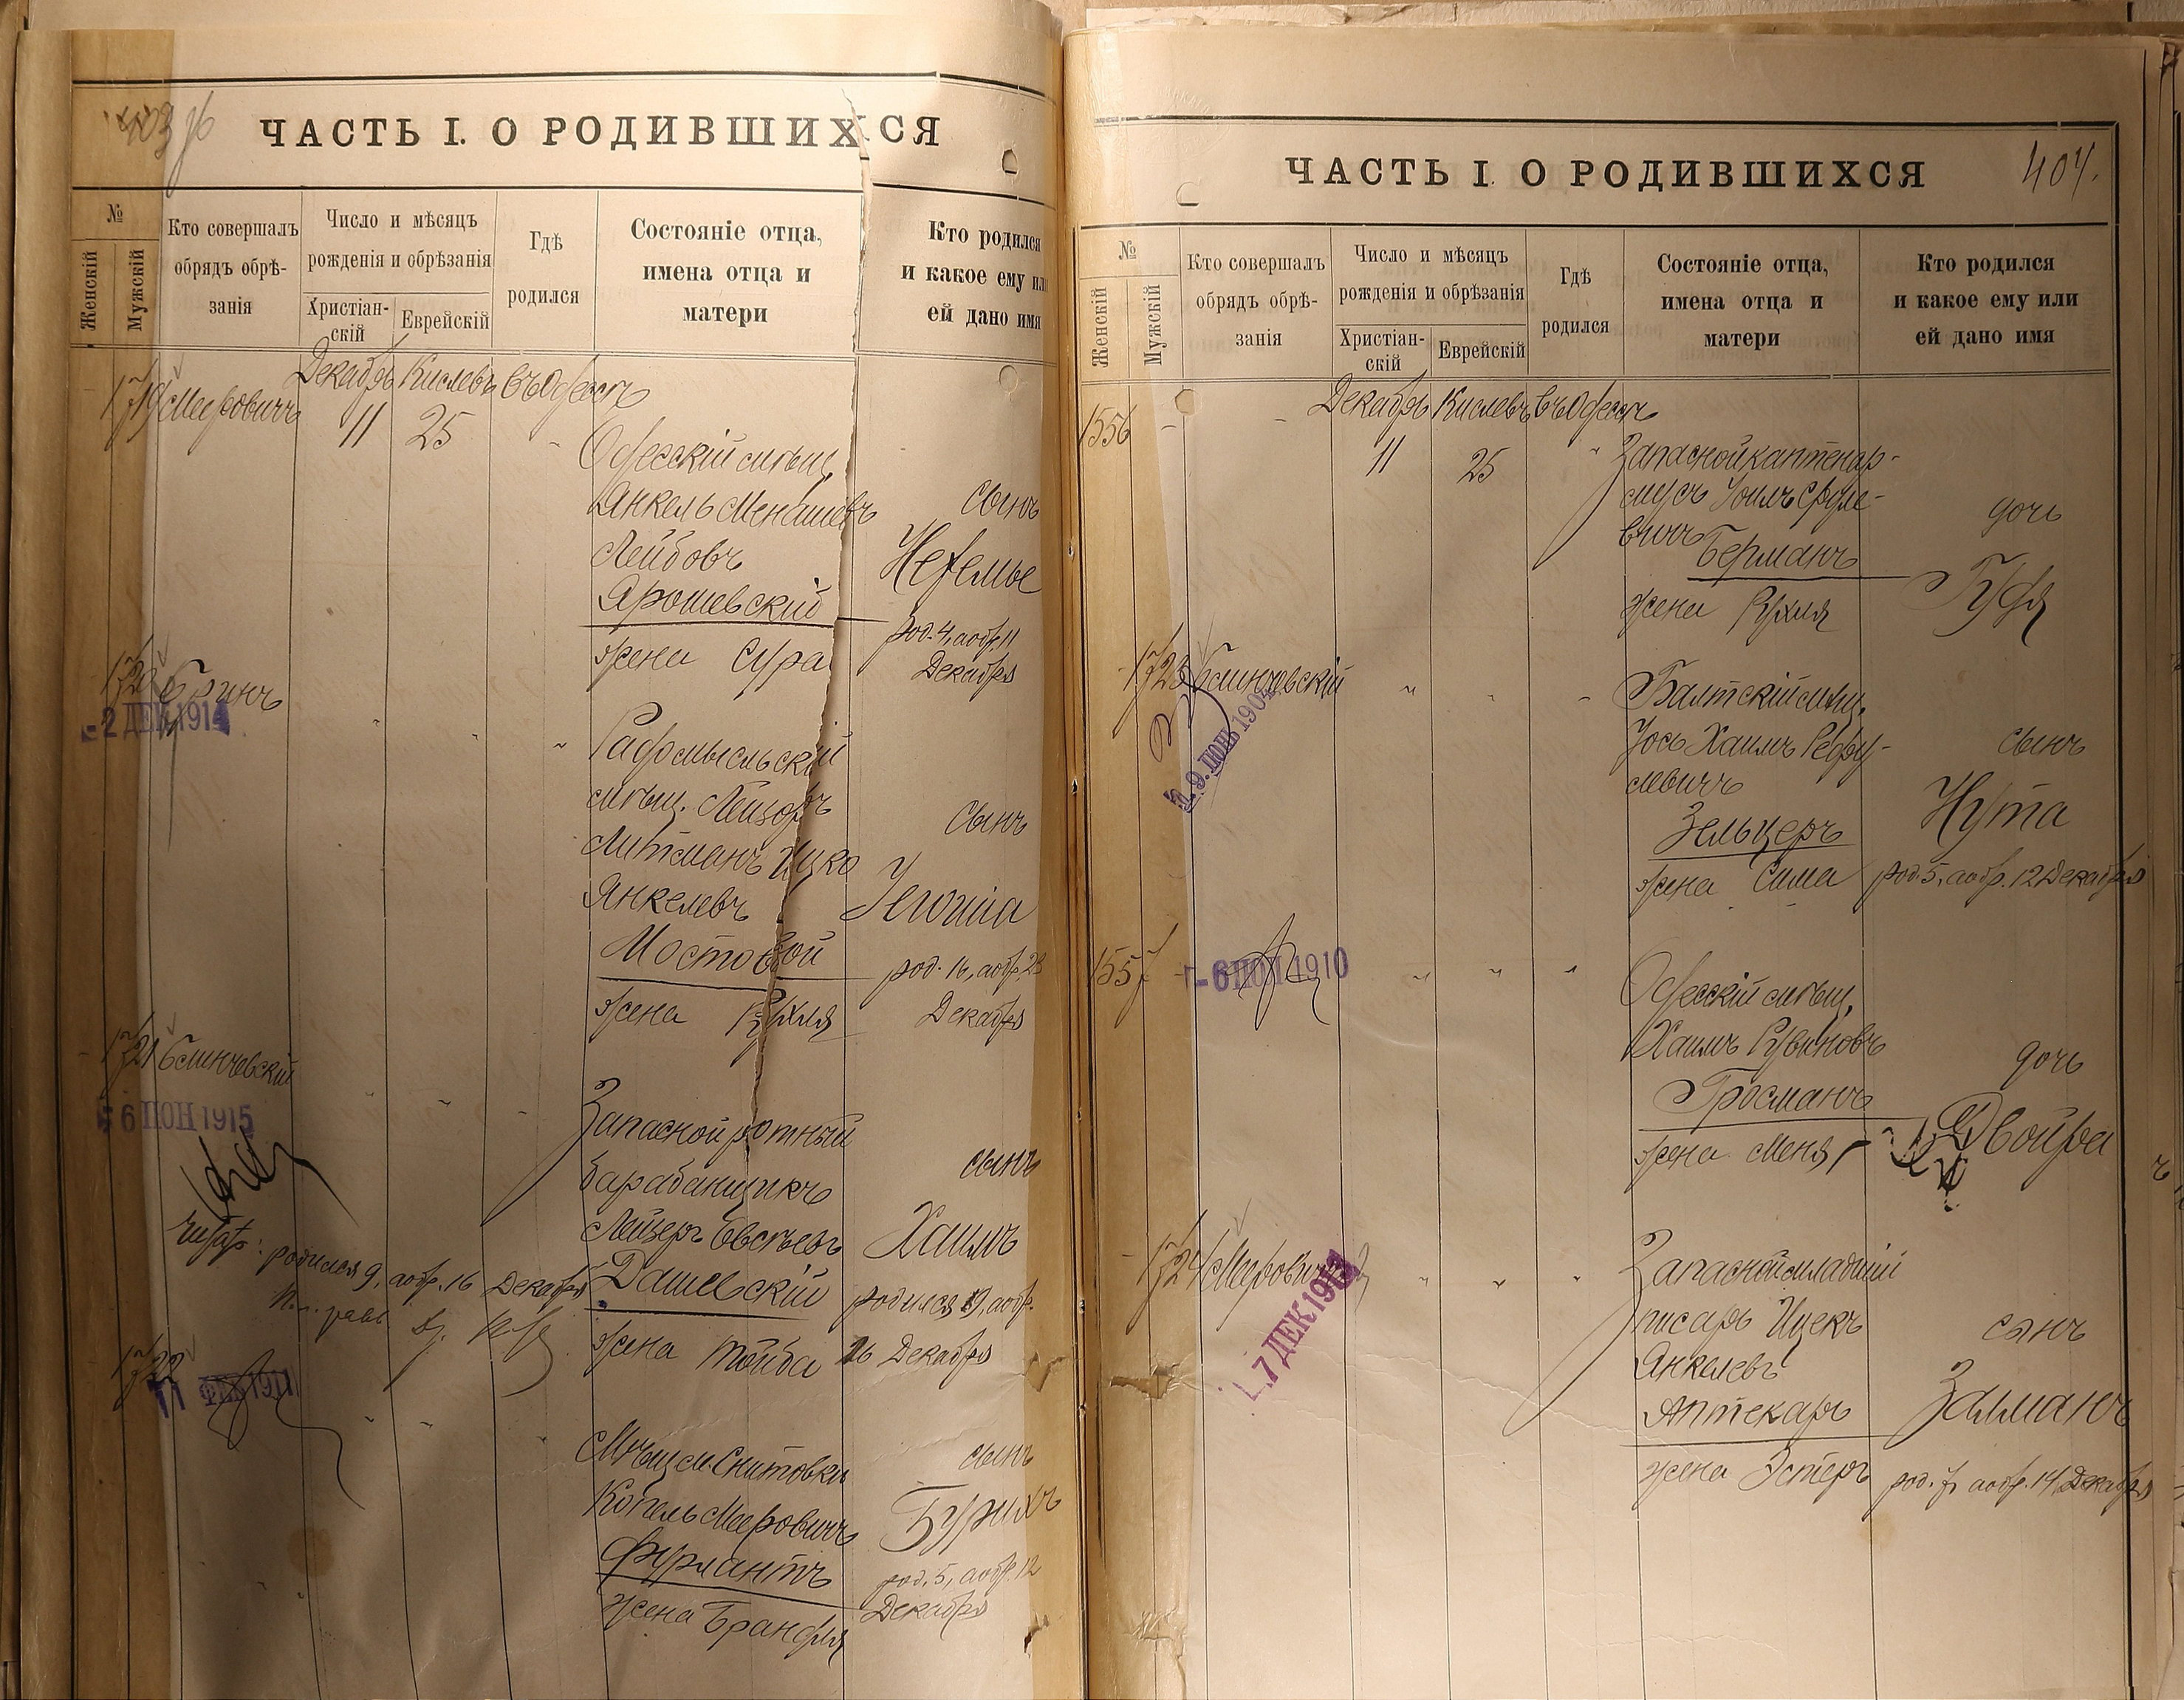 ЧАСТЬ I. О РОДИВШИХСЯ
№
Женскій
Мужскій
Кто совершалъ
обрядъ обрѣ-
занія
Число и мѣсяцъ
рожденія и обрѣзанія
Христіан-
скій
Еврейскій
Гдѣ
родился
Состояніе отца,
имена отца и
матери
Кто родился
и какое ему или
ей дано имя
Декабрь Кислевъ въ Одессѣ
1719 Мееровичъ 11 25
Одесскій мѣщ.
Янкель Менашевъ
Лейбовъ
Ярошевскій
жена Сура
сынъ
Нехемье
род. 4, а обр. 11
Декабря
1720
- 2 ДЕК 1914
Радомысльскій
мѣщ. Лейзоръ
Литманъ Ицко
Янкелевъ
Мостовой
жена Рухля
сынъ
род. 16, а обр. 23
Декабря
1721
6 ІЮН 1915
Запасной ротный
барабанщикъ
Лейзеръ Овсѣевъ
Дашевскій
жена Тойба
сынъ
Хаимъ
родился 9, а обр.
16 Декабря
родился 9, а обр. 16 Декабря
1722
11 1911
Мѣщ. м. Снитовки
Копель Меровичъ
Фурмантъ
жена Брандля
сынъ
Бурихъ
род. 5, а обр. 12
Декабря
ЧАСТЬ I. О РОДИВШИХСЯ
404.
№
Женскій
Мужскій
Кто совершалъ
обрядъ обрѣ-
занія
Число и мѣсяцъ
рожденія и обрѣзанія
Христіан-
скій
Еврейскій
Гдѣ
родился
Состояніе отца,
имена отца и
матери
Кто родился
и какое ему или
ей дано имя
Декабрь Кислевъ въ Одессѣ
1556 - - 11 25
Запасной каптенар-
мусъ Іоилъ Сруле-
вичъ Берманъ
жена Рухля
дочь
1723
Балтскій мѣщ.
Іось Хаимъ Рефу-
левичъ
Зельцеръ
жена Сима
сынъ
Нута
род. 5, а обр. 12 Декабря
1557
- 6 1910
Одесскій мѣщ.
Хаимъ Рувиновъ
Гросманъ
жена Меня
дочь
Двойра
1724 Меровичъ
7 ДЕК 1913
Запасной младшій
писарь Ицекъ
Янкелевъ
Аптекарь
жена Эстеръ
сынъ
Залманъ
род. 7, а обр. 14 Декабря